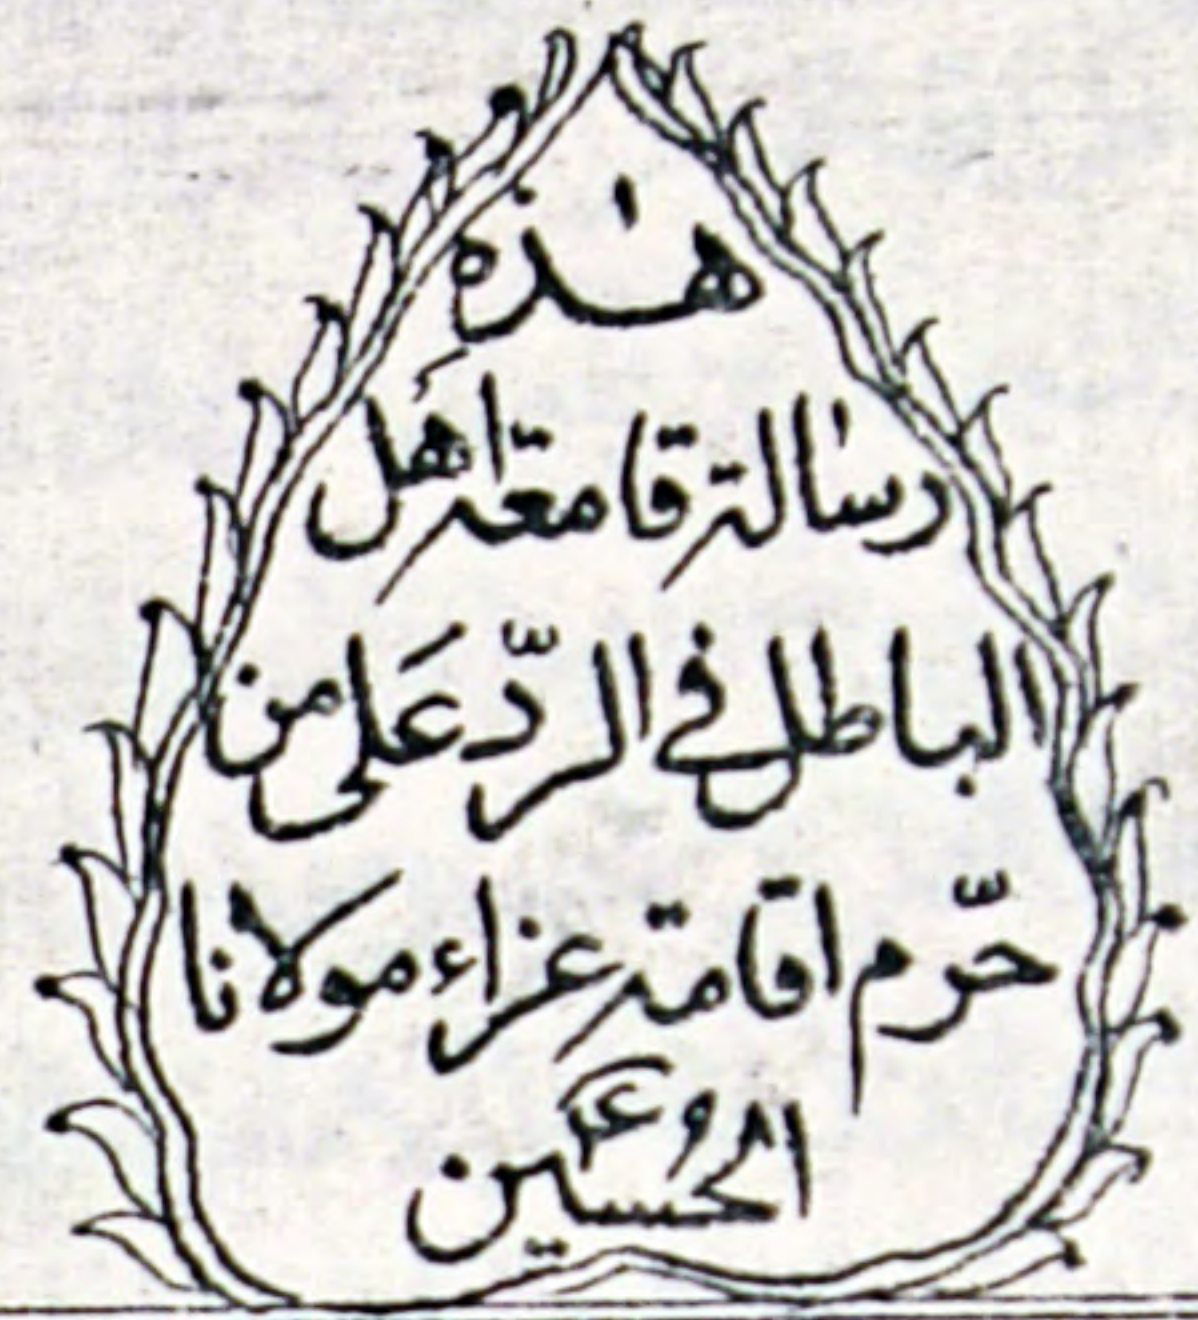 هٰذه
رسالة قامعة اهل
الباطل في الردّ على من
حرّم اقامة عزاء مولانا
الحُسَين ؑ